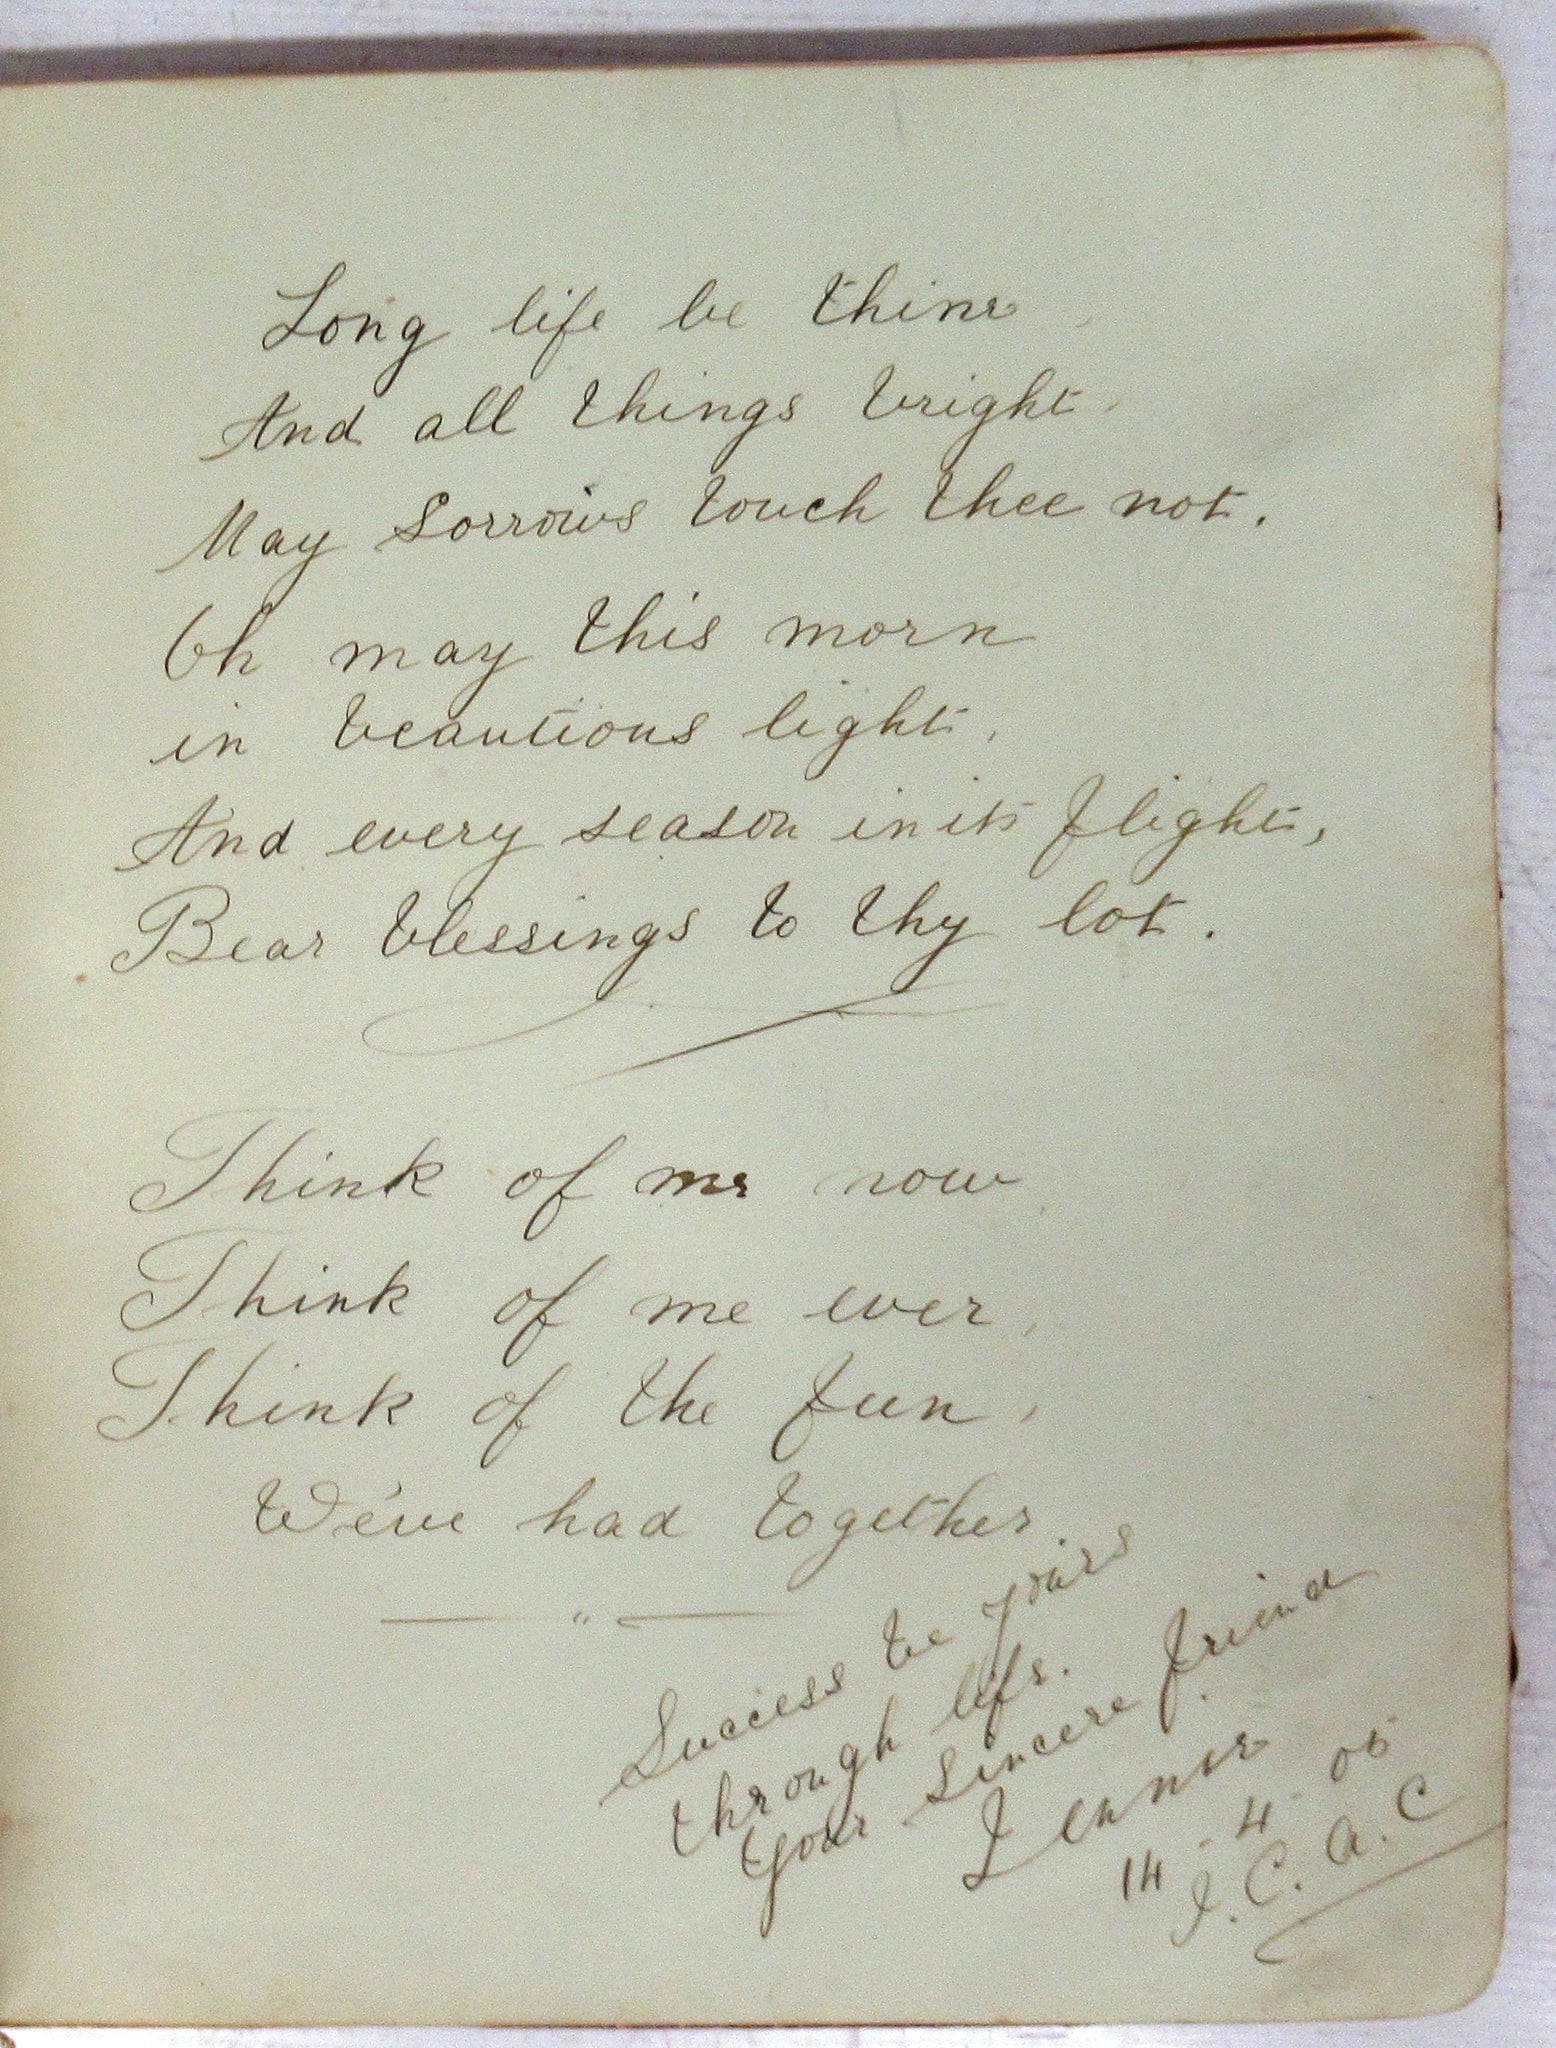 Long life be thine,
And all things bright,
May sorrows touch thee not.
Oh may this morn
in beautious light,
And every season in its flight,
Bear blessings to thy lot.
Think of me now
Think of me ever,
Think of the fun,
We've had together
Success be yours
through life.
Your sincere friend
14-4-05
J. C. A. C